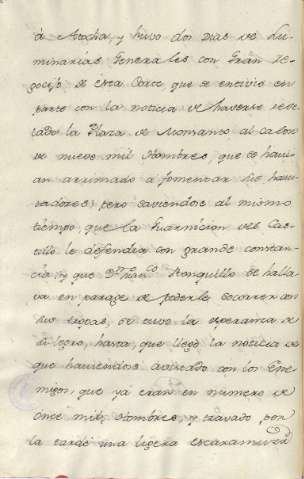 á Atocha, y huvo dos dias de Lu-
minarias Generales con Gran Re-
gocijo de esta Corte, que se entivió en
parte con la noticia de haverse
la Plaza de Monzon al cabo
de nueve mil Hombres, que se havi-
an arrimado a fomentar
pero saviendose al mismo
tiempo, que la Guarnicion del Cas-
tillo le defendia con grande constan-
cia, y que Dn. Franco. Ronquillo se halla-
va en parage de poderle socorrer con
sus tropas, se tuvo la esperanza de
hasta, que llegó la noticia de
que haviendose avistado con los Ene-
migos, que yá eran en número de
once mil Hombres, y travado por
la tarde una ligera escaramuza